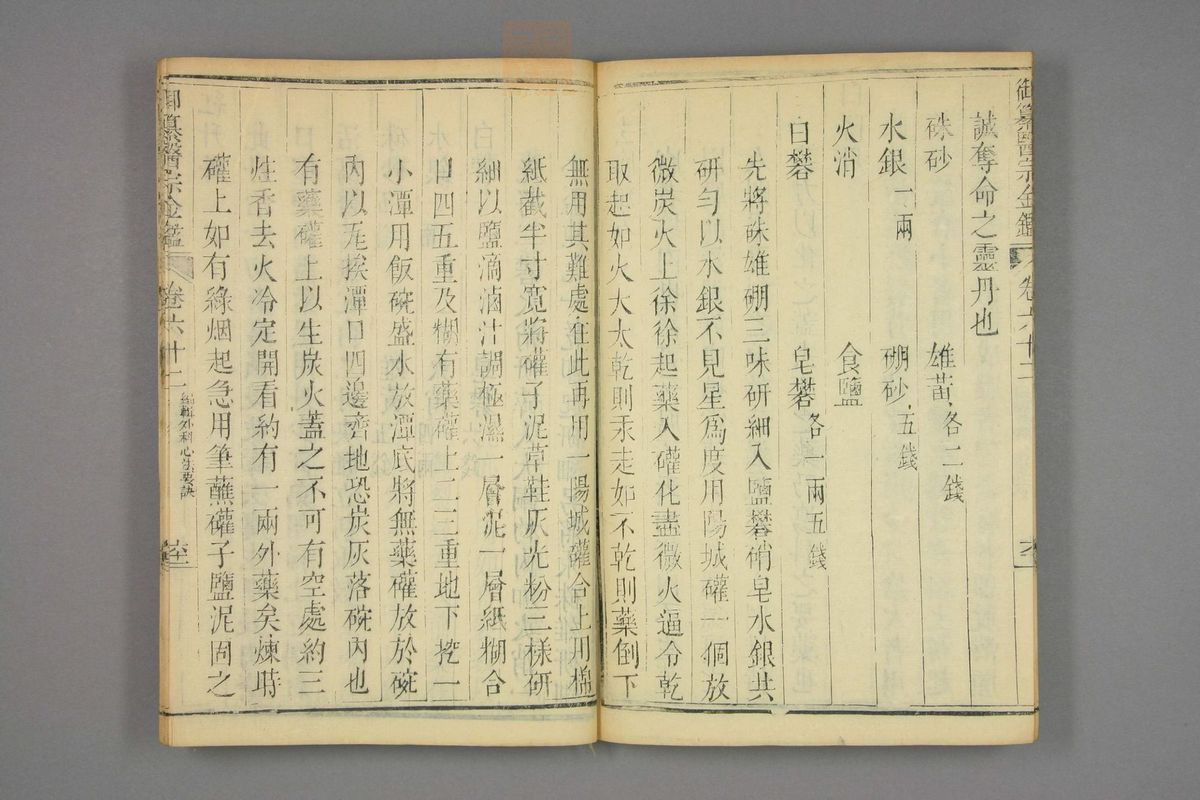 御纂醫宗金鑑 卷六十二 六十一
誠奪命之靈丹也
硃砂 雄黃各二錢
水銀一兩 硼砂五錢
火消 食鹽
白礬 皂礬各一兩五錢
先將硃雄硼三味研細入鹽礬硝皂水銀共
研勻以水銀不見星爲度用陽城罐一個放
微炭火上徐徐起藥入罐化盡微火逼令乾
取起如火大太乾則汞走如不乾則藥倒下
無用其難處在此再用一陽城罐合上用棉
紙截半寸寬將罐子泥草鞋灰光粉三樣研
細以鹽滴滷汁調極濕一層泥一層紙糊合
口四五重及糊有藥罐上二三重地下挖一
小潭用飯碗盛水放潭底將無藥罐放於碗
內以瓦挨潭口四邊齊地恐炭灰落碗內也
有藥罐上以生炭火蓋之不可有空處約三
炷香去火冷定開看約有一兩外藥矣煉時
罐上如有綠烟起急用筆蘸罐子鹽泥固之
御纂醫宗金鑑 卷六十二 編輯外科心法要訣 六十一